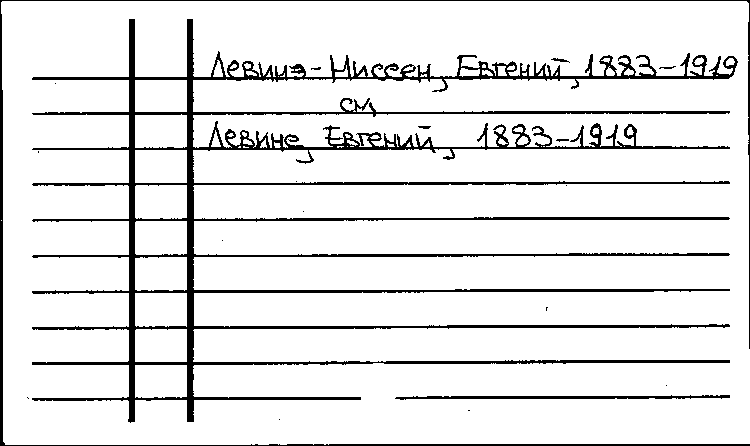 Левинэ-Ниссен, Евгений, 1883-1919
см.
Левине, Евгений, 1883-1919